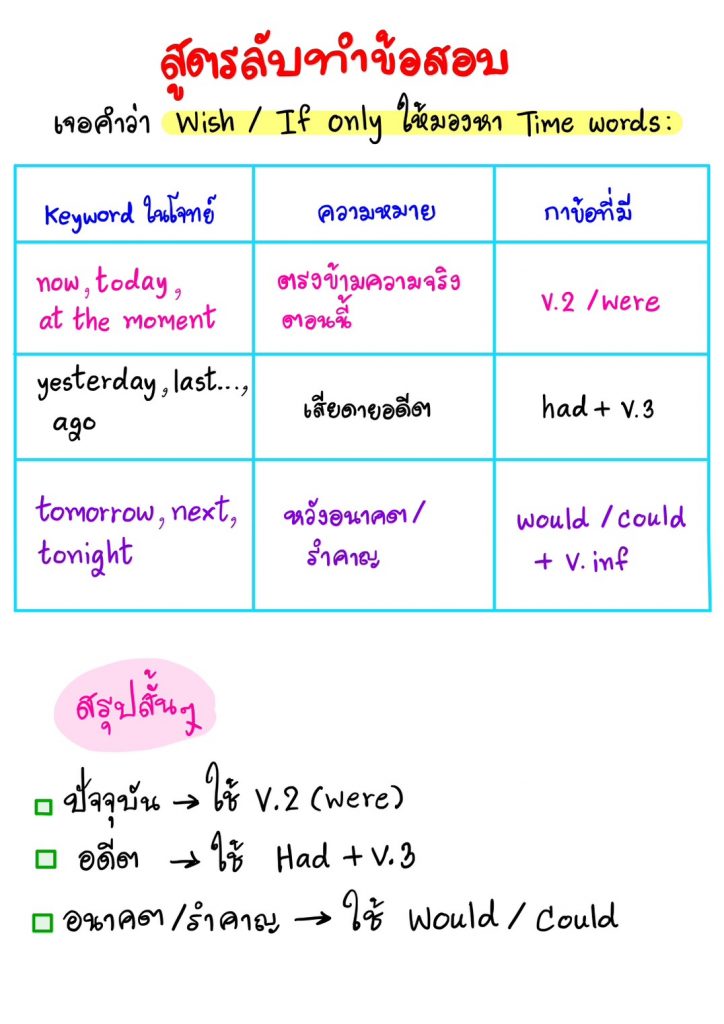 สูตรลับทำข้อสอบ
เจอคำว่า Wish / If only ให้มองหา Time words:
Keyword ในโจทย์
ความหมาย
กาข้อที่มี
now, today,
at the moment
ตรงข้ามความจริง
ตอนนี้
V.2 /were
yesterday, last...,
ago
เสียดายอดีต
had + V.3
tomorrow, next,
tonight
หวังอนาคต/
รำคาญ
would / could
+ V. inf
สรุปสั้นๆ
ปัจจุบัน → ใช้ V.2 (were)
อดีต → ใช้ Had + V.3
อนาคต/รำคาญ → ใช้ Would / Could